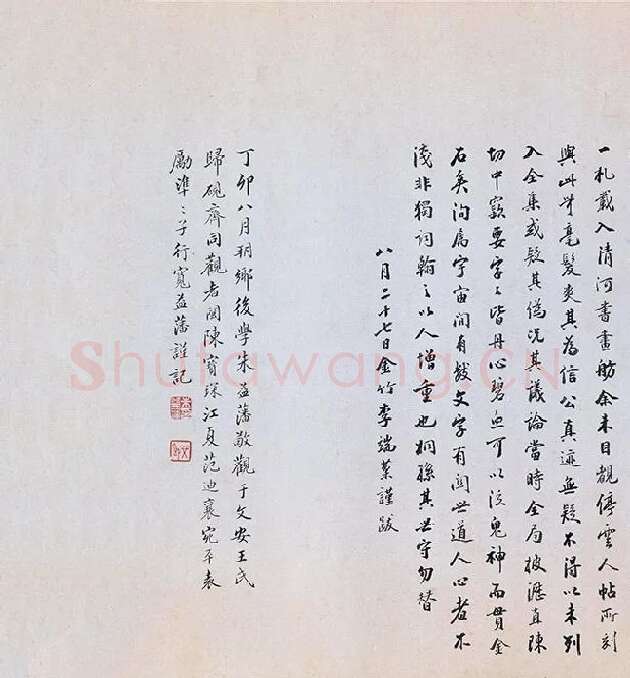 一札載入清河書畫舫余未目觀停雲人帖所刻
與此竿毫髮爽其為信公真迹無疑不得以未列
入全集或疑其偽況其議論當時全局披瀝直陳
切中窾要字〻皆丹心碧血可以泣鬼神而貫金
石矣洵屬宇宙間有數文字有關世道人心者不
淺非獨詞翰之以人增重也桐孫其世守勿替
八月二十七日金竹李端棻謹跋
丁卯八月朔鄉後學朱益藩敬觀于文安王氏
歸硯齋同觀者閩陳寶琛江夏范迪襄宛平袁
勵準之子行寬益藩謹記
Shufawang.CN